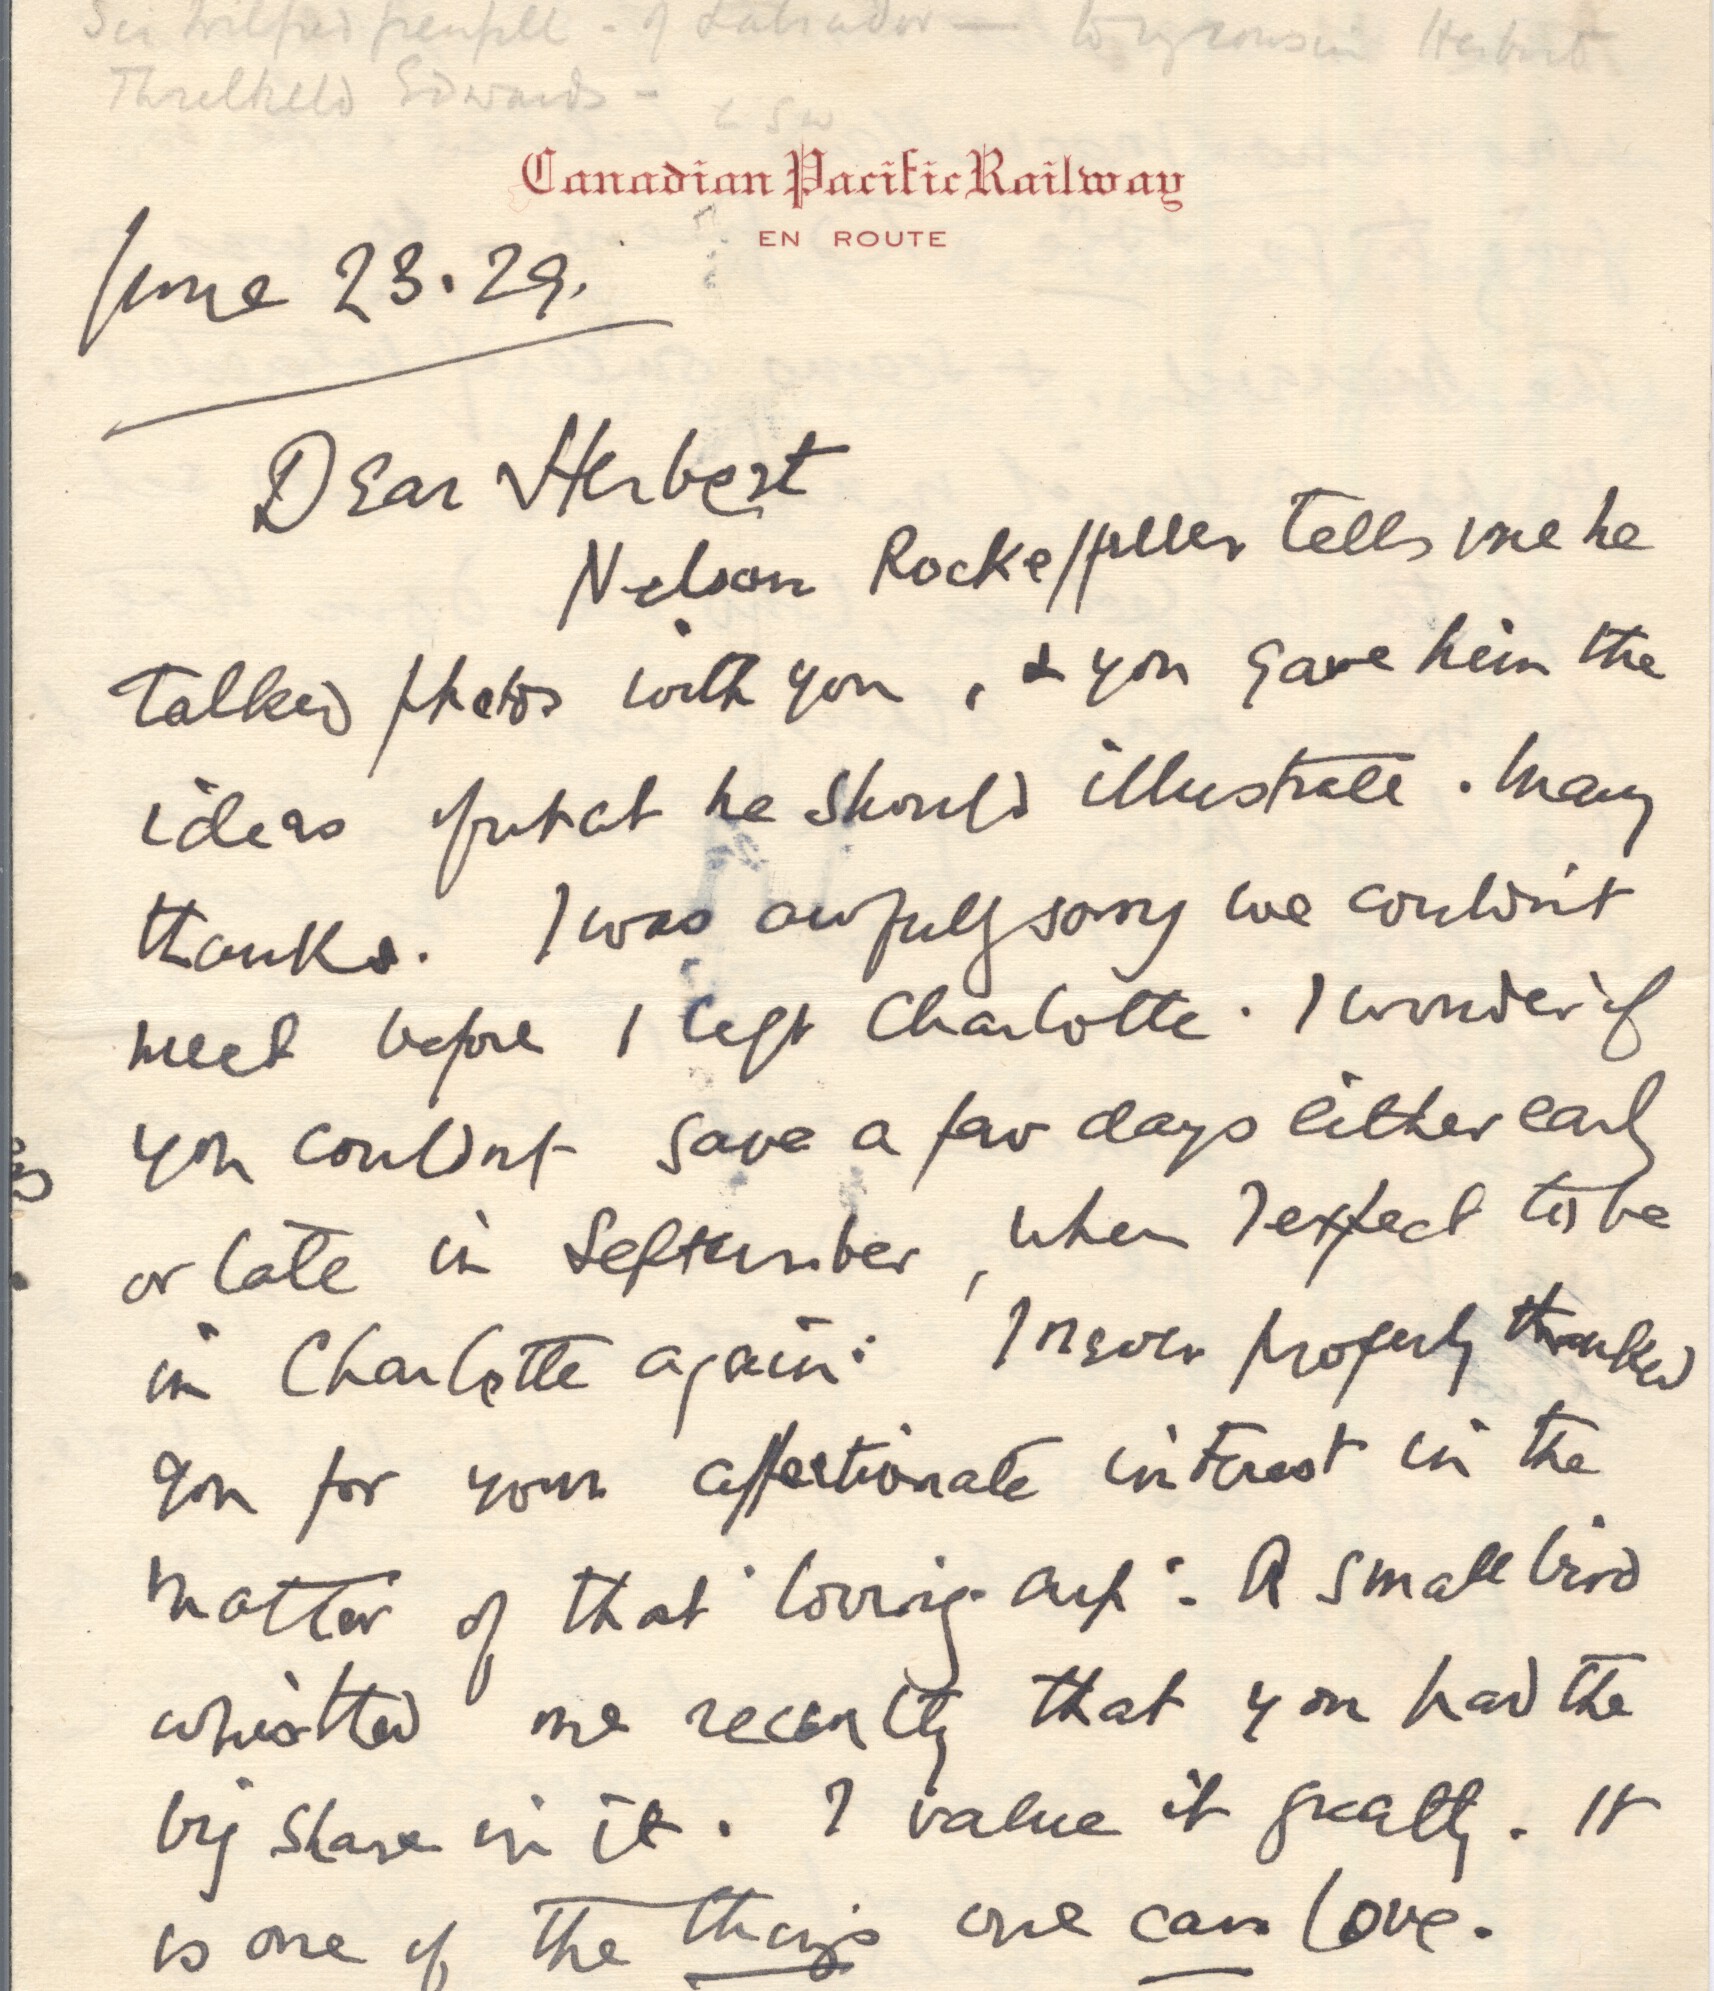 Sir Wilfred Grenfell - of Labrador — to my cousin Herbert
Threlkeld Edwards -
L S W
Canadian Pacific Railway
EN ROUTE
June 23. 29.
Dear Herbert
Nelson Rockeffeller tells me he
talked photos with you, & you gave him the
ideas of what he should illustrate. Many
thanks. I was awfully sorry we couldn't
meet before I left Charlotte. I wonder if
you couldnt save a few days either early
or late in September, when I expect to be
in Charlotte again: I never properly thanked
you for your affectionate interest in the
matter of that 'loving cup'. A small bird
whistled me recently that you had the
big share in it. I value it greatly. It
is one of the things one can love.